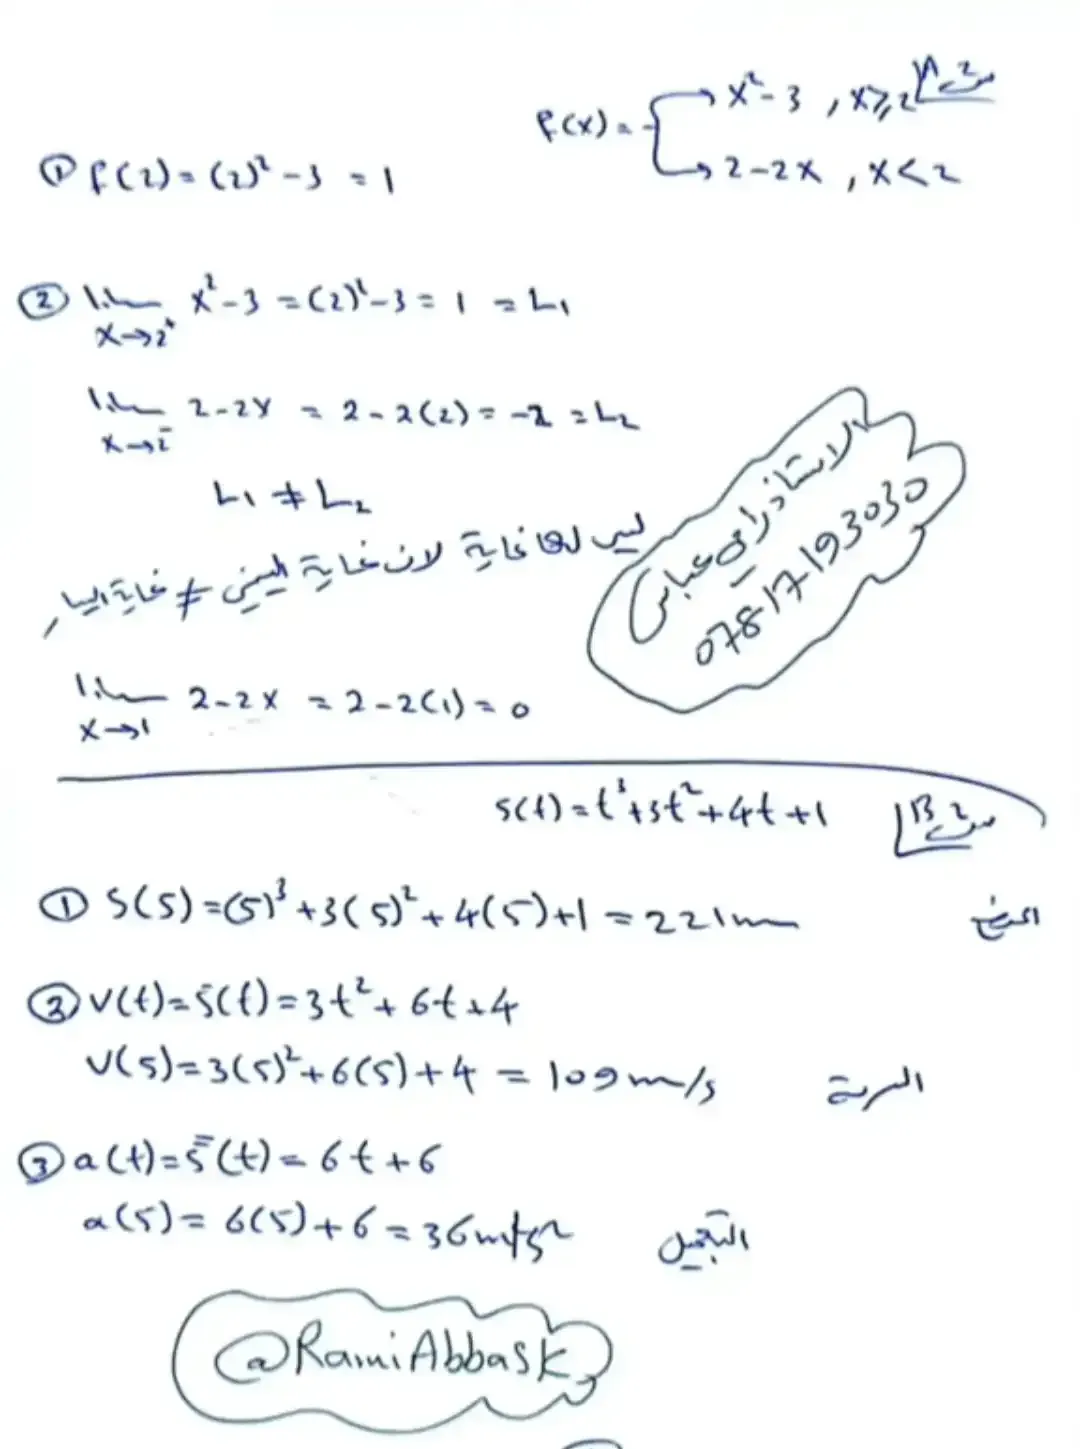 س2 A
f(x) = x² - 3 , x ≥ 2
2 - 2x , x < 2
① f(2) = (2)² - 3 = 1
② lim x→2⁺ x² - 3 = (2)² - 3 = 1 = L₁
lim x→2⁻ 2 - 2x = 2 - 2(2) = -2 = L₂
L₁ ≠ L₂
ليس لها غاية لان غاية اليمنى ≠ غاية اليسار
الاستاذ رامي عباس
07817193030
lim x→1 2 - 2x = 2 - 2(1) = 0
س2 B
s(t) = t³ + 3t² + 4t + 1
① s(5) = (5)³ + 3(5)² + 4(5) + 1 = 221 m
② v(t) = s̄(t) = 3t² + 6t + 4
v(5) = 3(5)² + 6(5) + 4 = 109 m/s السرعة
③ a(t) = s̿(t) = 6t + 6
a(5) = 6(5) + 6 = 36 m/s² التعجيل
@RamiAbbask